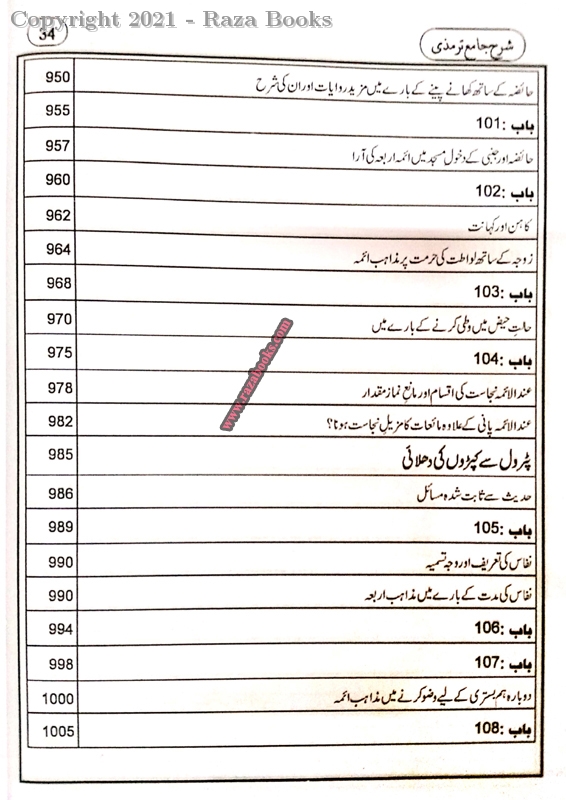 Copyright 2021 - Raza Books
34
شرح جامع ترمذی
حائضہ کے ساتھ کھانے پینے کے بارے میں مزید روایات اور ان کی شرح 950
باب :101 955
حائضہ اور جنبی کے دخول مسجد میں ائمہ اربعہ کی آرا 957
باب :102 960
کاہن اور کہانت 962
زوجہ کے ساتھ لواطت کی حرمت پر مذاہب ائمہ 964
باب :103 968
حالتِ حیض میں وطی کرنے کے بارے میں 970
باب :104 975
عند الائمہ نجاست کی اقسام اور مانع نماز مقدار 978
عند الائمہ پانی کے علاوہ مائعات کا مزیل نجاست ہونا؟ 982
پٹرول سے کپڑوں کی دھلائی 985
حدیث سے ثابت شدہ مسائل 986
باب :105 989
نفاس کی تعریف اور وجہ تسمیہ 990
نفاس کی مدت کے بارے میں مذاہب اربعہ 990
باب :106 994
باب :107 998
دوبارہ ہم بستری کے لیے وضو کرنے میں مذاہب ائمہ 1000
باب :108 1005
www.razabooks.com